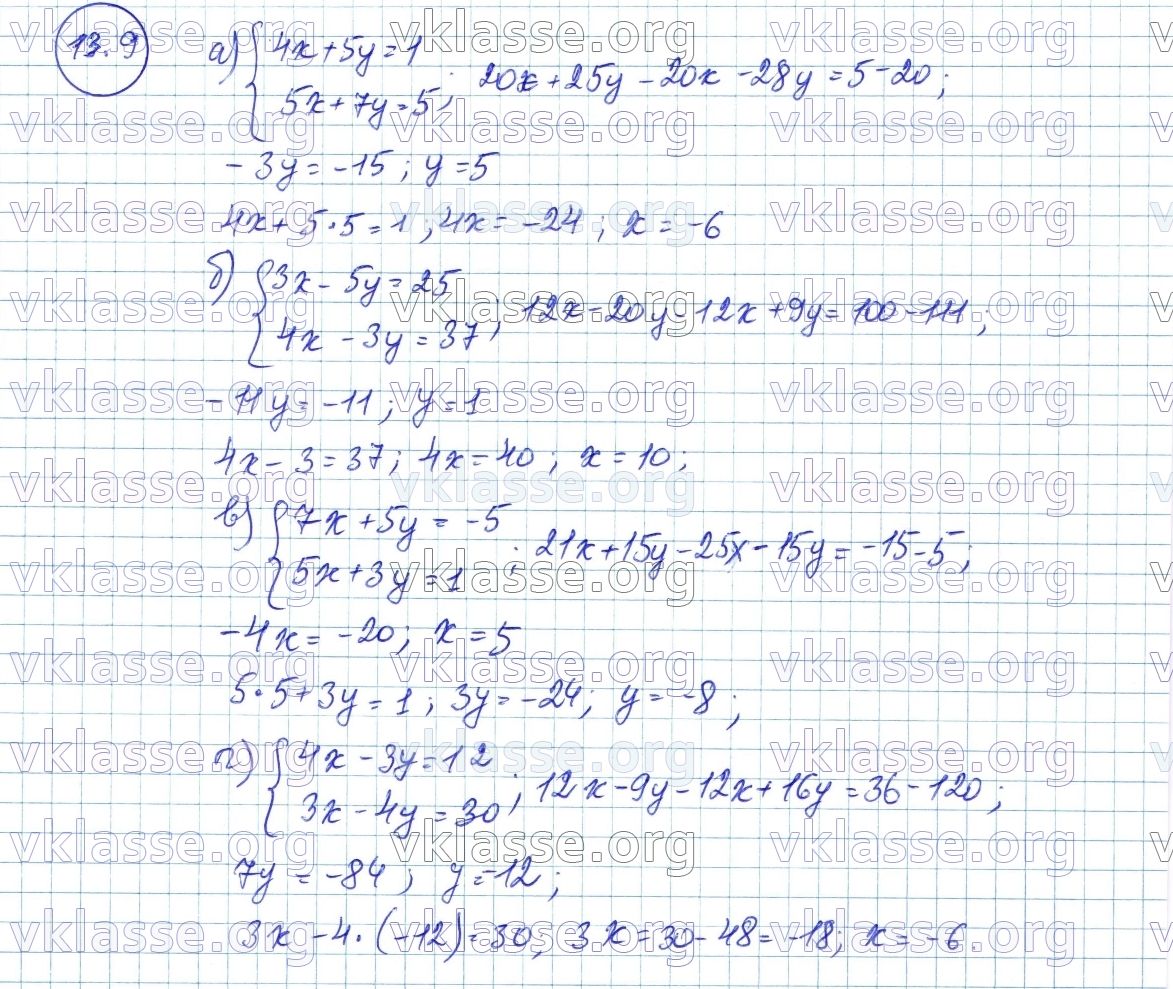 13.9
а) { 4x + 5y = 1
5x + 7y = 5 ; 20x + 25y - 20x - 28y = 5 - 20 ;
- 3y = -15 ; y = 5
4x + 5·5 = 1 ; 4x = -24 ; x = -6
б) { 3x - 5y = 25
4x - 3y = 37 ; 12x - 20y - 12x + 9y = 100 - 111 ;
- 11y = -11 ; y = 1
4x - 3 = 37 ; 4x = 40 ; x = 10 ;
в) { 7x + 5y = -5
5x + 3y = 1 ; 21x + 15y - 25x - 15y = -15 - 5 ;
-4x = -20 ; x = 5
5·5 + 3y = 1 ; 3y = -24 ; y = -8 ;
г) { 4x - 3y = 12
3x - 4y = 30 ; 12x - 9y - 12x + 16y = 36 - 120 ;
7y = -84 ; y = -12 ;
3x - 4·(-12) = 30, 3x = 30 - 48 = -18 ; x = -6
vklasse.org